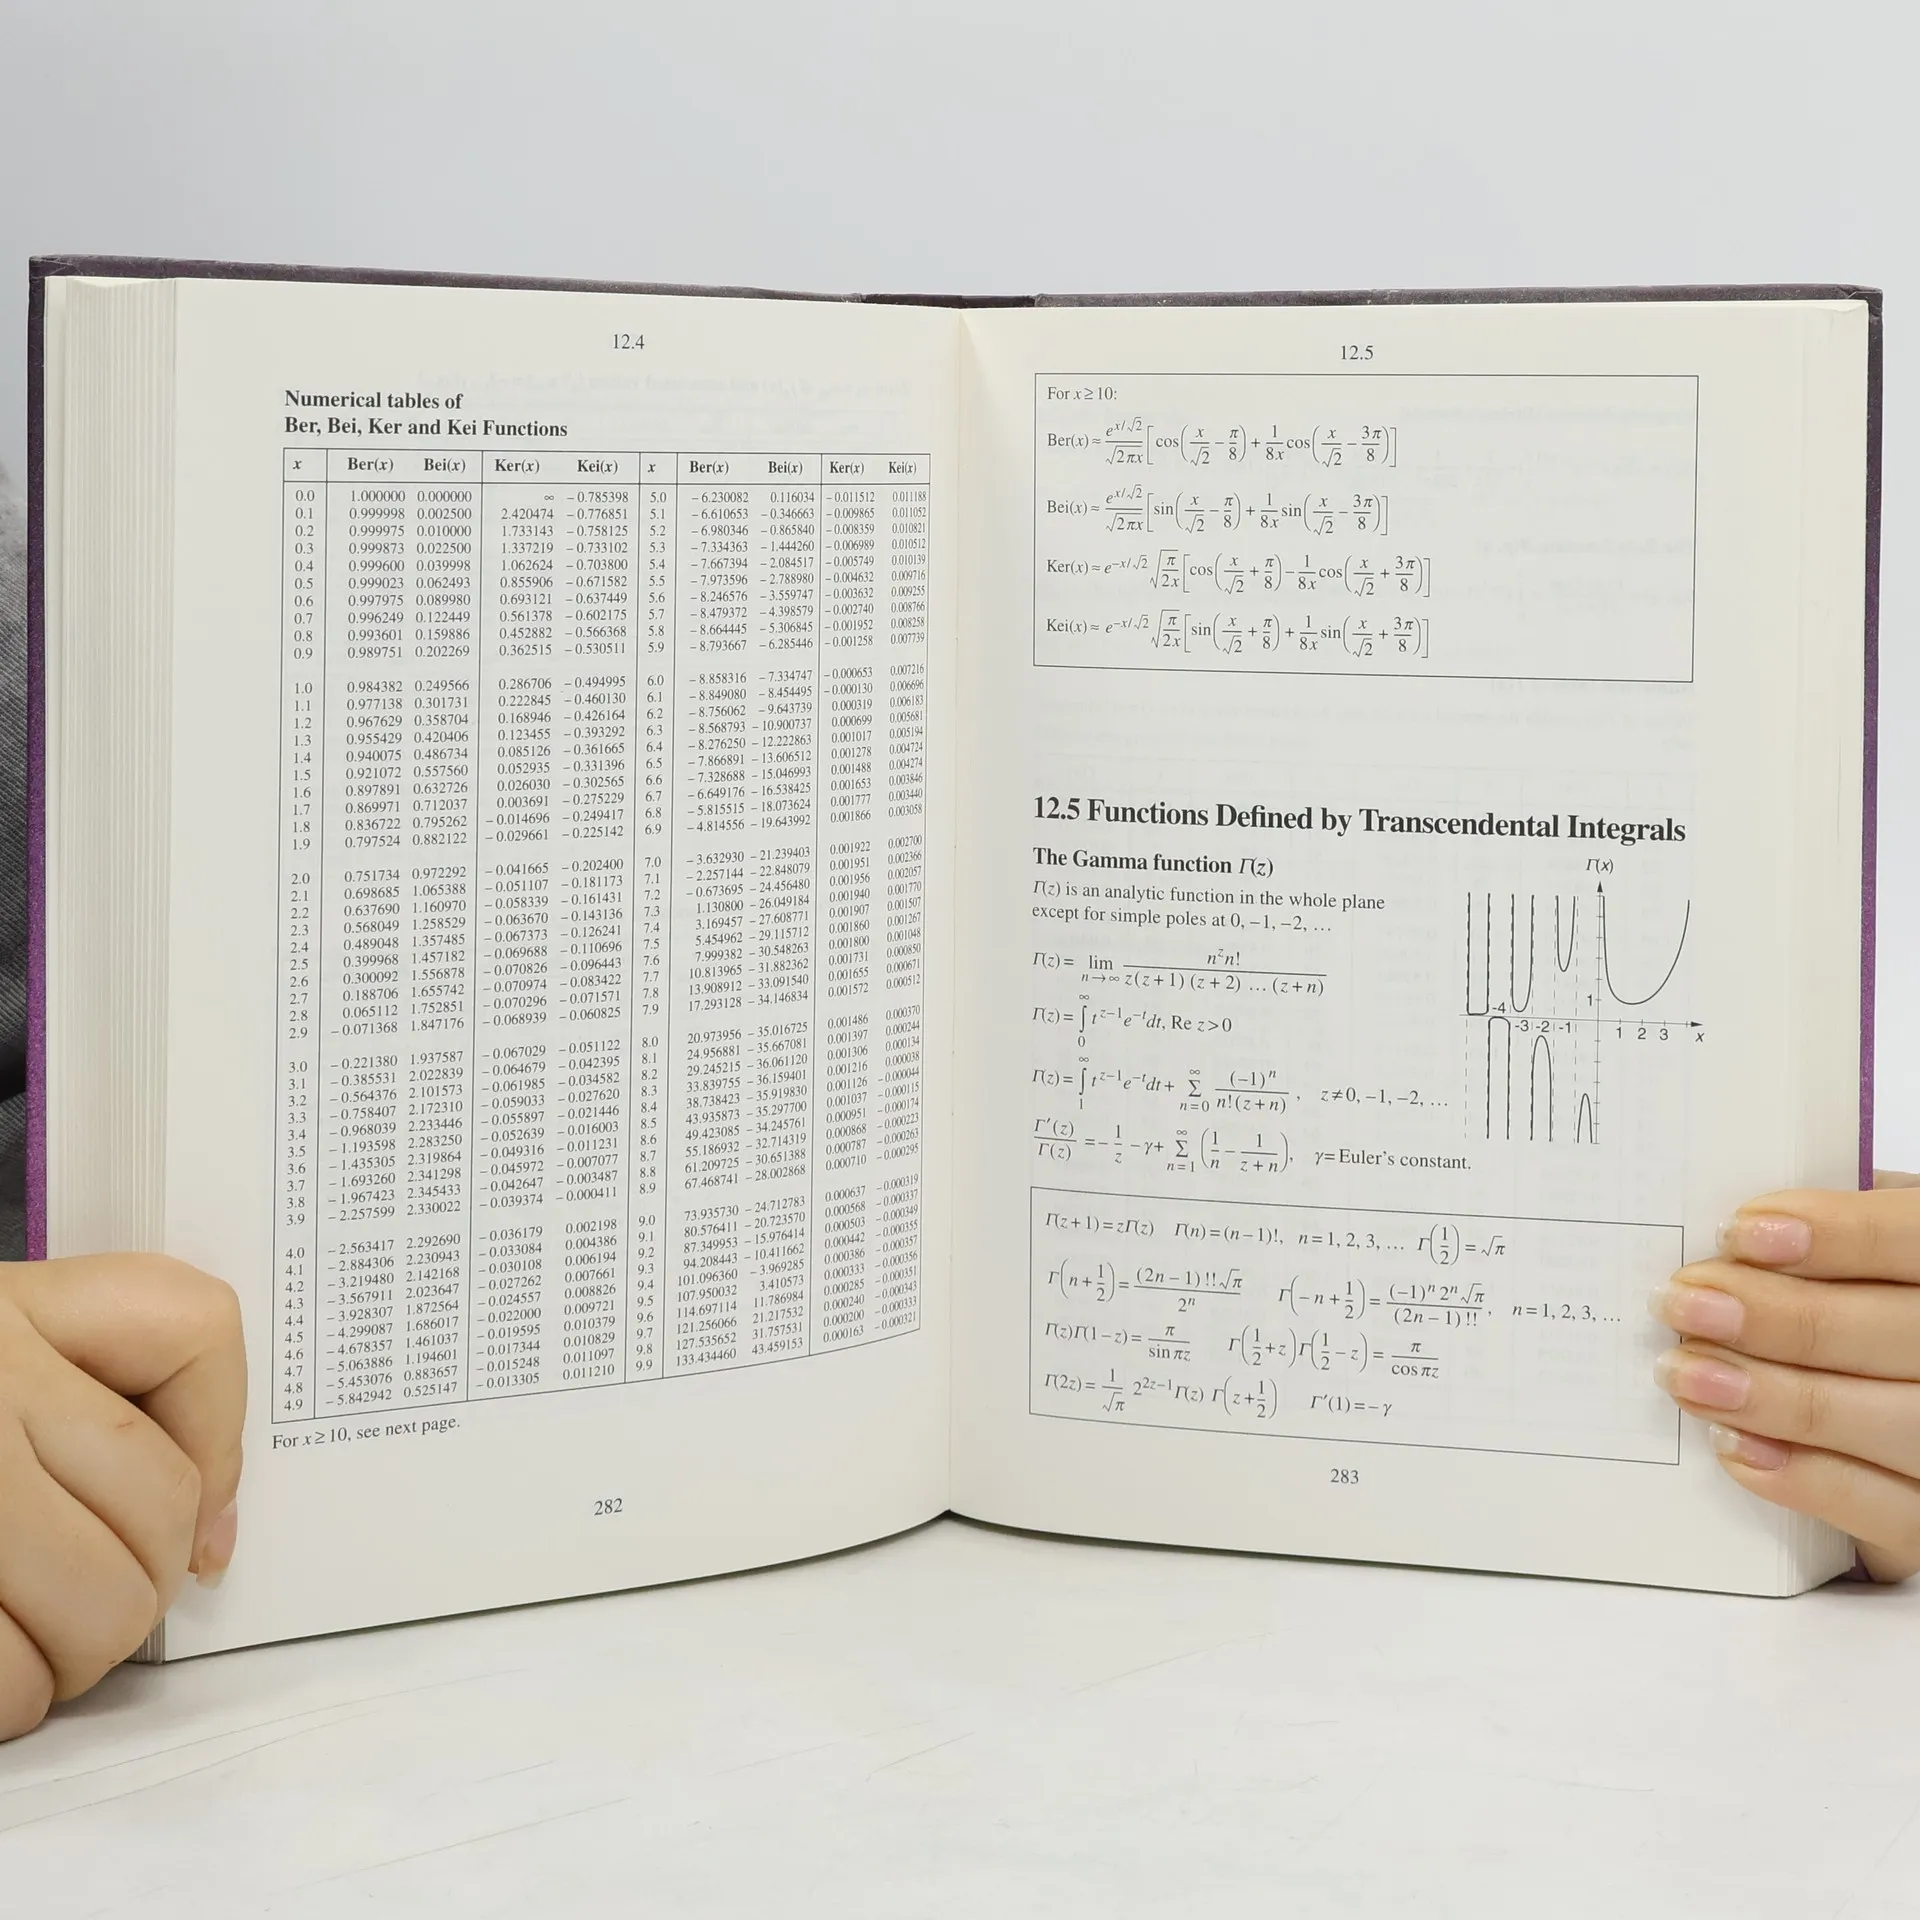 12.4
Numerical tables of
Ber, Bei, Ker and Kei Functions
x Ber(x) Bei(x) Ker(x) Kei(x) x Ber(x) Bei(x) Ker(x) Kei(x)
0.0 1.000000 0.000000 ∞ −0.785398 5.0 −6.230082 0.116034 −0.011512 0.011188
0.1 0.999998 0.002500 2.420474 −0.776851 5.1 −6.610653 −0.346663 −0.009865 0.011052
0.2 0.999975 0.010000 1.733143 −0.758125 5.2 −6.980346 −0.865840 −0.008359 0.010821
0.3 0.999873 0.022500 1.337219 −0.733102 5.3 −7.334363 −1.444260 −0.006989 0.010512
0.4 0.999600 0.039998 1.062624 −0.703800 5.4 −7.667394 −2.084517 −0.005749 0.010139
0.5 0.999023 0.062493 0.855906 −0.671582 5.5 −7.973596 −2.788980 −0.004632 0.009716
0.6 0.997975 0.089980 0.693121 −0.637449 5.6 −8.246576 −3.559747 −0.003632 0.009255
0.7 0.996249 0.122449 0.561378 −0.602175 5.7 −8.479372 −4.398579 −0.002740 0.008766
0.8 0.993601 0.159886 0.452882 −0.566368 5.8 −8.664445 −5.306845 −0.001952 0.008258
0.9 0.989751 0.202269 0.362515 −0.530511 5.9 −8.793667 −6.285446 −0.001258 0.007739
1.0 0.984382 0.249566 0.286706 −0.494995 6.0 −8.858316 −7.334747 −0.000653 0.007216
1.1 0.977138 0.301731 0.222845 −0.460130 6.1 −8.849080 −8.454495 −0.000130 0.006696
1.2 0.967629 0.358704 0.168946 −0.426164 6.2 −8.756062 −9.643739 0.000319 0.006183
1.3 0.955429 0.420406 0.123455 −0.393292 6.3 −8.568793 −10.900737 0.000699 0.005681
1.4 0.940075 0.486734 0.085126 −0.361665 6.4 −8.276250 −12.222863 0.001017 0.005194
1.5 0.921072 0.557560 0.052935 −0.331396 6.5 −7.866891 −13.606512 0.001278 0.004724
1.6 0.897891 0.632726 0.026030 −0.302565 6.6 −7.328688 −15.046993 0.001488 0.004274
1.7 0.869971 0.712037 0.003691 −0.275229 6.7 −6.649176 −16.538425 0.001653 0.003846
1.8 0.836722 0.795262 −0.014696 −0.249417 6.8 −5.815515 −18.073624 0.001777 0.003440
1.9 0.797524 0.882122 −0.029661 −0.225142 6.9 −4.814556 −19.643992 0.001866 0.003058
2.0 0.751734 0.972292 −0.041665 −0.202400 7.0 −3.632930 −21.239403 0.001922 0.002700
2.1 0.698685 1.065388 −0.051107 −0.181173 7.1 −2.257144 −22.848079 0.001951 0.002366
2.2 0.637690 1.160970 −0.058339 −0.161431 7.2 −0.673695 −24.456480 0.001956 0.002057
2.3 0.568049 1.258529 −0.063670 −0.143136 7.3 1.130800 −26.049184 0.001940 0.001770
2.4 0.489048 1.357485 −0.067373 −0.126241 7.4 3.169457 −27.608771 0.001907 0.001507
2.5 0.399968 1.457182 −0.069688 −0.110696 7.5 5.454962 −29.115712 0.001860 0.001267
2.6 0.300092 1.556878 −0.070826 −0.096443 7.6 7.999382 −30.548263 0.001800 0.001048
2.7 0.188706 1.655742 −0.070974 −0.083422 7.7 10.813965 −31.882362 0.001731 0.000850
2.8 0.065112 1.752851 −0.070296 −0.071571 7.8 13.908912 −33.091540 0.001655 0.000671
2.9 −0.071368 1.847176 −0.068939 −0.060825 7.9 17.293128 −34.146834 0.001572 0.000512
3.0 −0.221380 1.937587 −0.067029 −0.051122 8.0 20.973956 −35.016725 0.001486 0.000370
3.1 −0.385531 2.022839 −0.064679 −0.042395 8.1 24.956881 −35.667081 0.001397 0.000244
3.2 −0.564376 2.101573 −0.061985 −0.034582 8.2 29.245215 −36.061120 0.001306 0.000134
3.3 −0.758407 2.172310 −0.059033 −0.027620 8.3 33.839755 −36.159401 0.001216 0.000038
3.4 −0.968039 2.233446 −0.055897 −0.021446 8.4 38.738423 −35.919830 0.001126 −0.000044
3.5 −1.193598 2.283250 −0.052639 −0.016003 8.5 43.935873 −35.297700 0.001037 −0.000115
3.6 −1.435305 2.319864 −0.049316 −0.011231 8.6 49.423085 −34.245761 0.000951 −0.000174
3.7 −1.693260 2.341298 −0.045972 −0.007077 8.7 55.186932 −32.714319 0.000868 −0.000223
3.8 −1.967423 2.345433 −0.042647 −0.003487 8.8 61.209725 −30.651388 0.000787 −0.000263
3.9 −2.257599 2.330022 −0.039374 −0.000411 8.9 67.468741 −28.002868 0.000710 −0.000295
4.0 −2.563417 2.292690 −0.036179 0.002198 9.0 73.935730 −24.712783 0.000637 −0.000319
4.1 −2.884306 2.230943 −0.033084 0.004386 9.1 80.576411 −20.723570 0.000568 −0.000337
4.2 −3.219480 2.142168 −0.030108 0.006194 9.2 87.349953 −15.976414 0.000503 −0.000349
4.3 −3.567911 2.023647 −0.027262 0.007661 9.3 94.208443 −10.411662 0.000442 −0.000355
4.4 −3.928307 1.872564 −0.024557 0.008826 9.4 101.096360 −3.969285 0.000386 −0.000357
4.5 −4.299087 1.686017 −0.022000 0.009721 9.5 107.950032 3.410573 0.000333 −0.000356
4.6 −4.678357 1.461037 −0.019595 0.010379 9.6 114.697114 11.786984 0.000285 −0.000351
4.7 −5.063886 1.194601 −0.017344 0.010829 9.7 121.256066 21.217532 0.000240 −0.000343
4.8 −5.453076 0.883657 −0.015248 0.011097 9.8 127.535652 31.757531 0.000200 −0.000333
4.9 −5.842942 0.525147 −0.013305 0.011210 9.9 133.434460 43.459153 0.000163 −0.000321
For x ≥ 10, see next page.
282
12.5
For x ≥ 10:
Ber(x) ≈ e^{x/√2}/√(2πx) [cos(x/√2 − π/8) + 1/(8x) cos(x/√2 − 3π/8)]
Bei(x) ≈ e^{x/√2}/√(2πx) [sin(x/√2 − π/8) + 1/(8x) sin(x/√2 − 3π/8)]
Ker(x) ≈ e^{−x/√2} √(π/2x) [cos(x/√2 + π/8) − 1/(8x) cos(x/√2 + 3π/8)]
Kei(x) ≈ e^{−x/√2} √(π/2x) [sin(x/√2 + π/8) + 1/(8x) sin(x/√2 + 3π/8)]
12.5 Functions Defined by Transcendental Integrals
The Gamma function Γ(z)
Γ(z) is an analytic function in the whole plane
except for simple poles at 0, −1, −2, …
Γ(z) = lim_{n→∞} n^z n!/(z(z+1)(z+2) … (z+n))
Γ(z) = ∫_0^∞ t^{z−1} e^{−t} dt, Re z > 0
Γ(z) = ∫_1^∞ t^{z−1} e^{−t} dt + Σ_{n=0}^∞ (−1)^n/(n!(z+n)), z ≠ 0, −1, −2, …
Γ′(z)/Γ(z) = −1/z − γ + Σ_{n=1}^∞ (1/n − 1/(z+n)), γ = Euler's constant.
Γ(x)
1
-4 -3 -2 -1 1 2 3 x
Γ(z+1) = zΓ(z) Γ(n) = (n−1)!, n = 1, 2, 3, … Γ(1/2) = √π
Γ(n + 1/2) = (2n−1)!!√π/2^n Γ(−n + 1/2) = (−1)^n 2^n √π/(2n−1)!!, n = 1, 2, 3, …
Γ(z)Γ(1−z) = π/sin πz Γ(1/2 + z)Γ(1/2 − z) = π/cos πz
Γ(2z) = 1/√π 2^{2z−1} Γ(z) Γ(z + 1/2) Γ′(1) = −γ
283